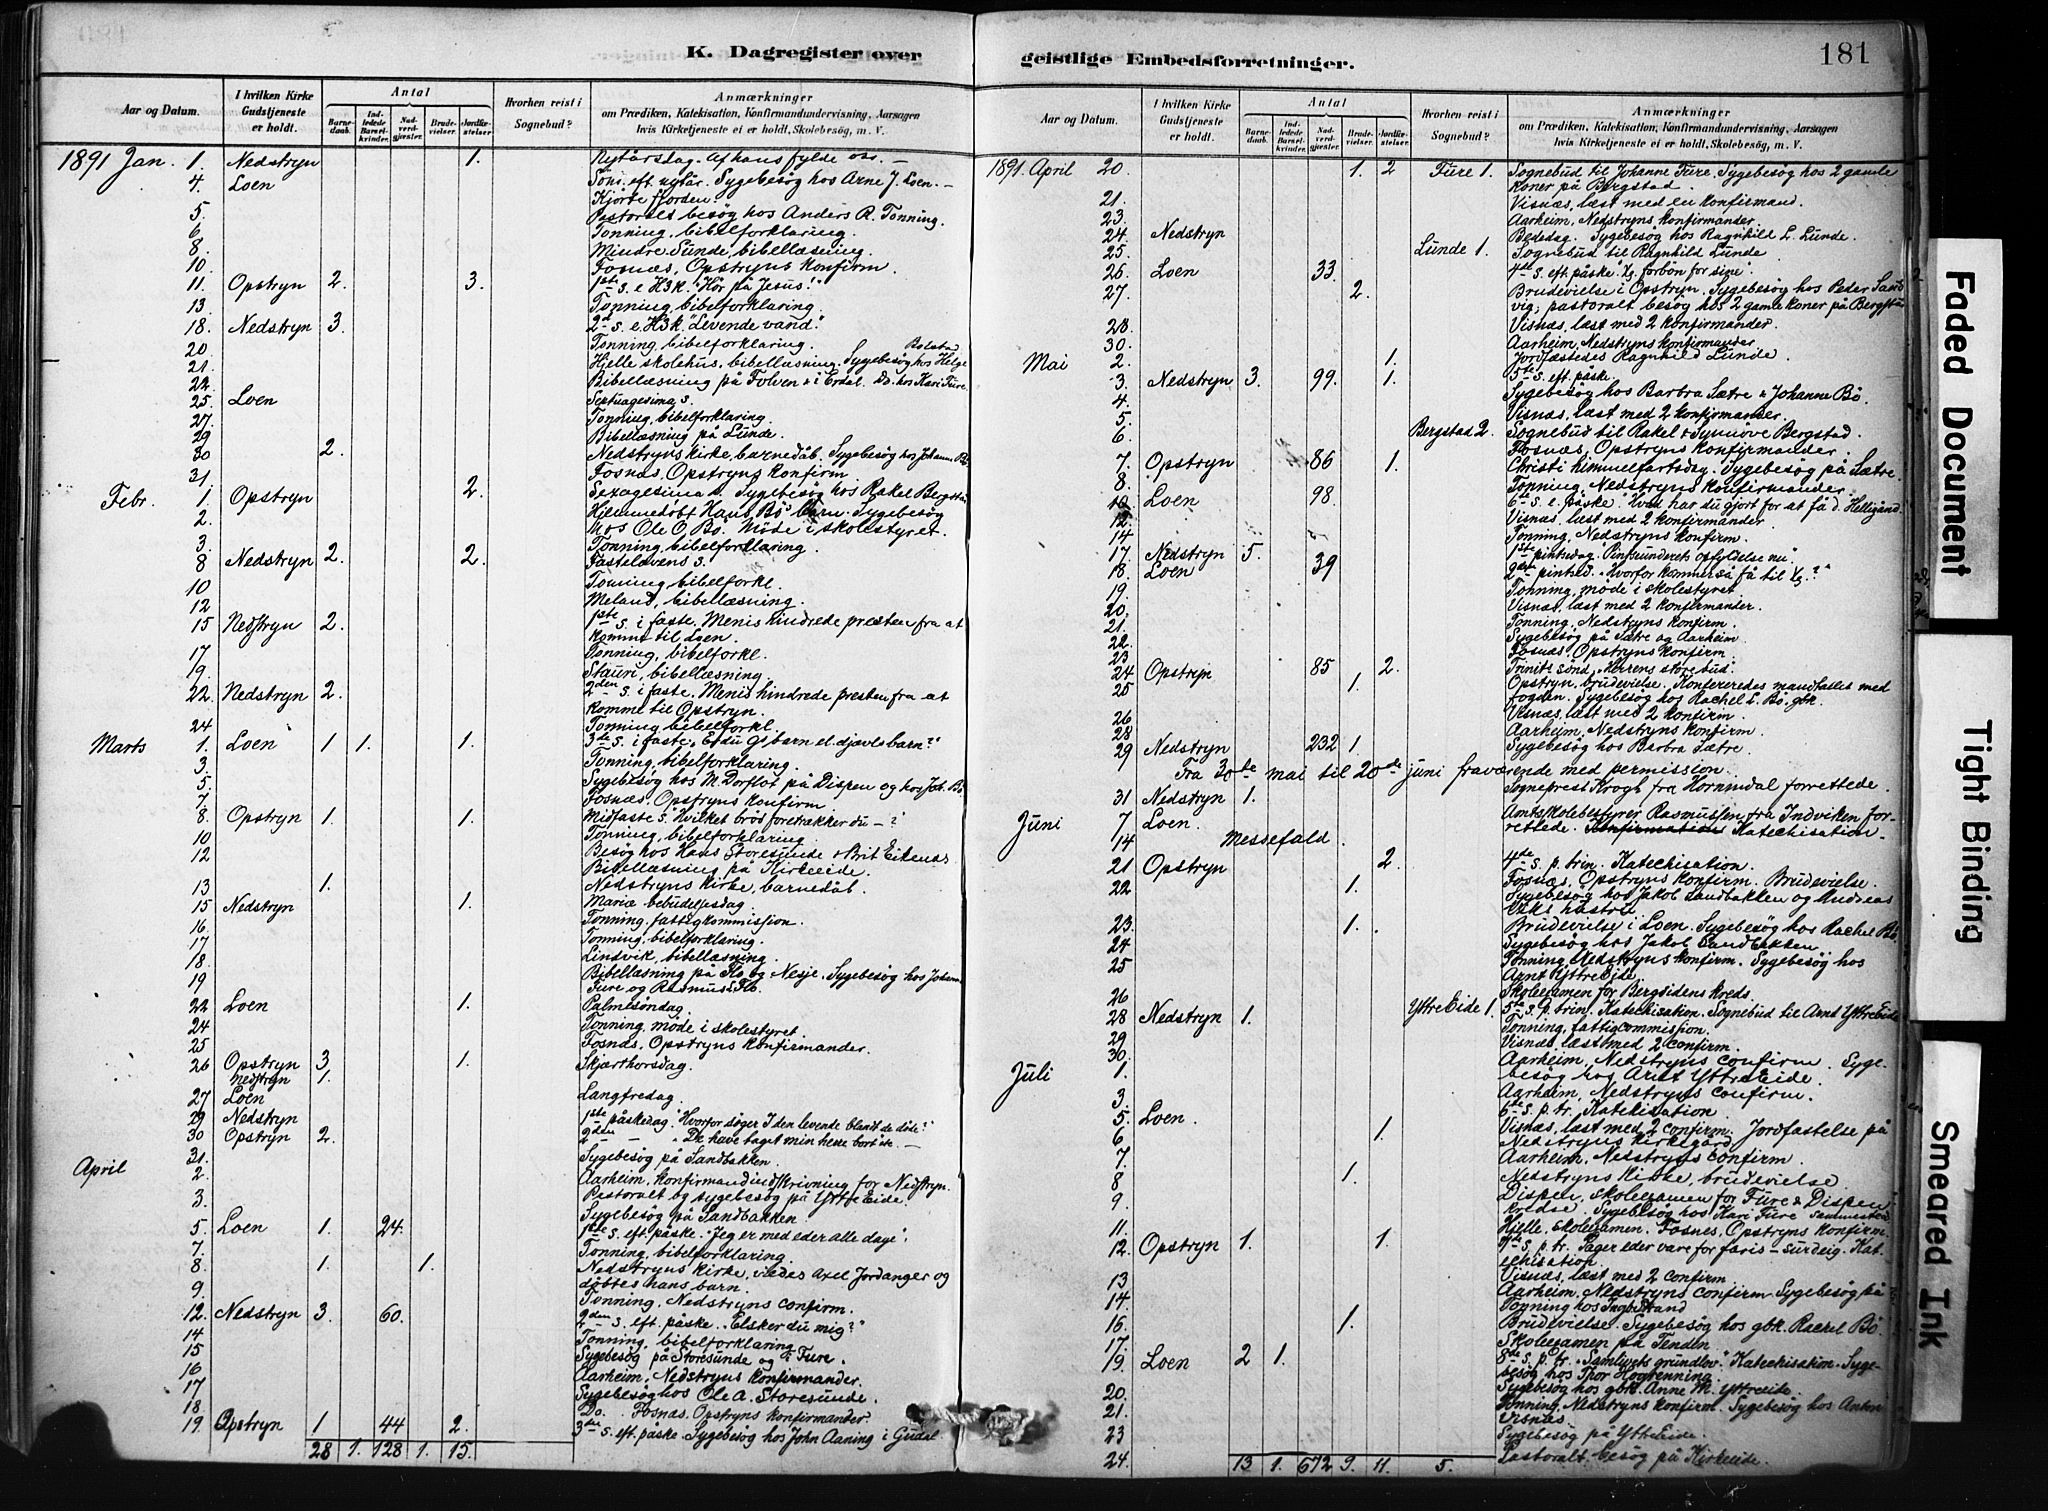 K. Dagregister over geistlige Embedsforretninger.
181
Aar og Datum.
I hvilken Kirke Gudstjeneste er holdt.
Antal
Barnedaab.
Indledede Barselkvinder.
Nadvergjester.
Brudevielser.
Jordfæstelser.
Hvorhen reist i Sognebud?
Anmærkninger
om Prædiken, Katekisation, Konfirmandundervisning, Aarsagen
hvis Kirketjeneste ei er holdt, Skolebesøg, m. V.
1891 Jan. 1. Nedstryn 1. Nytårsdag. Af hans fylde osv. —
4. Loen Søn. eft. nytår. Sygebesøg hos Arne J. Loen. —
Kjørte fjorden.
5. Pastoralt besøg hos Anders R. Tonning.
6. Tonning, bibelforklaring.
8. Mindre Sunde, bibellæsning.
10. Fosnæs, Opstryns Konfirm.
11. Opstryn 2. 3. 1ste s. e. H3K. "Hør på Jesus!"
13. Tonning, bibelforklaring.
18. Nedstryn 3. 2d s. e. H3K. "Levende vand."
20. Tonning, bibelforklaring.
21. Hjelle skolehus, bibellæsning. Sygebesøg hos Helge Bolstad
22. Bibellæsning på Folven & i Erdal. Do. hos Kari Fure.
25. Loen Septuagesima s.
27. Tonning, bibelforklaring.
29 Bibellæsning på Lunde.
30 2. Nedstryns kirke, barnedåb. Sygebesøg hos Johanne Bø.
31. Fosnæs, Opstryns Konfirm.
Febr. 1. Opstryn 2. Sexagesima s. Sygebesøg hos Rakel Bergstad
2. Hjemmedøbt Hans Bø' barn. Sygebesøg
hos Ole O. Bø. Møde i skolestyret.
3. Tonning, bibelforklaring.
8 Nedstryn 2. 2. Fastelavens s.
10 Tonning, bibelforkl.
12 Meland, bibellæsning.
15 Nedstryn 2. 1ste s. i faste. Menis hindrede præsten fra at
komme til Loen.
17 Tonning, bibelforkl.
19. Stauri, bibellæsning.
22. Nedstryn 2. 2den s. i faste. Menis hindrede presten fra at
komme til Opstryn.
24 Tonning bibelforkl.
Marts 1. Loen 1 1. 1. 3de s. i faste. "Er du Gs barn el. djævls barn?"
3. Tonning, bibelforklaring.
5. Sygebesøg hos M. Dorflot på Dispen og hos Joh. Bø
7 Fosnæs. Opstryns konfirm.
8 Opstryn 1. 1. Midfaste s. "Hvilket brød foretrækker du — ?"
10 Tonning, bibelforklaring
12 Besøg hos Hans Storesunde & Brit Eikenæs.
Bibellæsning på Kirkeeide.
13 1. Nedstryns kirke, barnedåb.
15 Nedstryn 1. Mariæ bebudelsesdag.
16. Tonning, fattigkommission.
17 Tonning, bibelforklaring.
18. Lindvik, bibellæsning.
19 Bibellæsning på Flo og Nesje. Sygebesøg hos Johanne
Fure og Rasmus Flo.
22 Loen 1. Palmesøndag.
24 Tonning, møde i skolestyret.
25 Fosnæs, Opstryns konfirmander.
26 Opstryn 3 1. Skjærthorsdag.
Nedstryn 1.
27 Loen Langfredag.
29 Nedstryn 1ste påskedag. "Hvorfor søger I den levende blandt de døde?"
30 Opstryn 2. 2den — — "De have taget min herre bort" etc. —
31. Sygebesøg på Sandbakken.
April 2. Aarheim, konfirmandindskrivning for Nedstryn.
3. Pastoralt og sygebesøg på Yttre Eide.
Sygebesøg på Sandbakken.
5. Loen 1. 24. 1ste s. eft. påske. "Jeg er med eder alle dage".
7. Tonning, bibelforklaring.
8. 1. 1. Nedstryns kirke, viedes Axel Jordanger og
døbtes hans barn.
9. Tonning, Nedstryns confirm.
12. Nedstryn 3. 60. 2den s. eft. påske. "Elsker du mig?"
14 Tonning, bibelforklaring.
15 Sygebesøg på Storesunde og i Fure.
16 Aarheim, Nedstryns konfirmander.
17 Sygebesøg hos Ole A. Storesunde.
18. Do. Fosnæs. Opstryns konfirmander
19. Opstryn 1 44 2. 3die s. eft. påske. Sygebesøg hos John Aaning i Gudal
28 1. 128 1. 15.
Aar og Datum.
I hvilken Kirke Gudstjeneste er holdt.
Antal
Barnedaab.
Indledede Barselkvinder.
Nadvergjester.
Brudevielser.
Jordfæstelser.
Hvorhen reist i Sognebud?
Anmærkninger
om Prædiken, Katekisation, Konfirmandundervisning, Aarsagen
hvis Kirketjeneste ei er holdt, Skolebesøg, m. V.
1891. April 20. 1. 2 Fure 1. Sognebud til Johanne Fure. Sygebesøg hos 2 gamle
koner på Bergstad.
21. Visnæs, læst med en konfirmand.
23. Aarheim, Nedstryns konfirmander.
24 Nedstryn Bededag. Sygebesøg hos Ragnhild L. Lunde.
25. Lunde 1. Sognebud til Ragnhild Lunde.
26. Loen 33. 4de s. eft. påske. Xg. forbøn for sine.
27. 2. Brudevielse i Opstryn. Sygebesøg hos Peder Sand
vig; pastoralt besøg hos 2 gamle koner på Bergstad.
28. Visnæs, læst med 2 konfirmander.
30. Aarheim, Nedstryns konfirmander
Mai 2. 1. Jordfæstedes Ragnhild Lunde.
3. Nedstryn 3. 99. 1. 5te s. eft. påske.
4. Sygebesøg hos Barbra Sætre & Johanne Bø.
5. Visnæs, læst med 2 konfirmander.
6. Bergstad 2. Sognebud til Rakel & Synnøve Bergstad.
Fosnæs, Opstryns konfirmander.
7. Opstryn 86 1. Christi himmelfartsdag. Sygebesøg på Sætre.
8. Tonning, Nedstryns konfirmander.
10 Loen 98. 6te s. e. påske. "Hvad har du gjort for at få d. Helligånd."
12 Visnæs, læst med 2 konfirmander.
14 Tonning, Nedstryns konfirm.
17. Nedstryn 5. 39 1ste pintsedag. "Pinseunderets opfyldelse nu".
18. Loen 2den pintsed. "Hvorfor kommer så få til Xs?"
19. Tonning, møde i skolestyret
20. Visnæs, læst med 2 konfirmander.
21. Tonning, Nedstryns konfirm.
22. Sygebesøg på Sætre og Aarheim.
23 Fosnæs, Opstryns konfirm.
24 Opstryn 85 2. Trinits sønd. "Herrens store bud."
25 1. Opstryn, brudevielse. Konfereredes mandtallet med
fogden. Sygebesøg hos Rachel L. Bø, gbk.
26 Visnæs, læst med 2 konfirm.
28 Aarheim, Nedstryns konfirm.
29 Nedstryn 232 1. Sygebesøg hos Barbra Sætre.
Fra 30te mai til 20de juni fraværende med permission.
31 Nedstryn 1. Sogneprest Krogh fra Hornindal forrettede.
Juni 7 Loen. Amtskolebestyrer Rasmussen fra Indviken for-
14 Messefald. rettede. Konfirmation Katechisation —
21 Opstryn 2. 4de s. p. trin. Katechisation.
22 1. Fosnæs, Opstryns konfirm. Brudevielse.
Sygebesøg hos Jakob Sandbakken og Andreas
23. 1. Brudevielse i Loen. Sygebesøg hos Rachel Bø.
24 Sygebesøg hos Jakob Sandbakken.
25 Tonning, Nedstryns konfirm. Sygebesøg hos
Arnt Yttreeide.
26 Skoleexamen for Bergsidens kreds.
28 Nedstryn 1. Yttre Eide 1. 5te s. p. trin. Katechisation. Sognebud til Arnt Yttre Eide
29 Tonning, fattigcommission.
30. Visnæs, læst med 2 confirm.
Juli 1. Aarheim, Nedstryns confirm. Syge-
besøg hos Arnt Yttreeide.
3. Aarheim, Nedstryns confirm.
5. Loen. 6te s. p. tr. Katekisation.
6 1. Visnæs, læst med 2 confirm. Jordfæstelse på
Nedstryns kirkegård.
7. Aarheim, Nedstryns confirm.
8 1. Nedstryns kirke, brudevielse.
9. Dispen, skoleexamen for Fure & Dispen
kredse. Sygebesøg hos Kari Fure
11. Hjelle, skoleexamen. Fosnes, Opstryns konfirm.
12. Opstryn 1. 1. 7de s. p. tr. Tager eder vare for faris — surdeig. Kat-
echisation.
13 Visnæs, læst med 2 confirm
14. Aarheim, Nedstryns confirm. Sygebesøg på
Tonning hos Ingb. Strand
16. 1. Brudevielse. Sygebesøg hos gbk. Rachel Bø.
17. Skoleexamen på Tenden
19. Loen 2 1. 8de s. p. tr. "Samlivets grundlov." Katechisation. Syge-
besøg hos Thor Høgrenning.
20. Sygebesøg hos gbk. Anne M. Yttreeide.
21. Tonning, Nedstryns konfirm. Sygebesøg hos Anton
Visnæs.
23 Sygebesøg på Yttreeide.
24. Pastoralt besøg på Kirkeeide.
13 1. 672 9. 11. 5.
Faded Document
Tight Binding
Smeared Ink